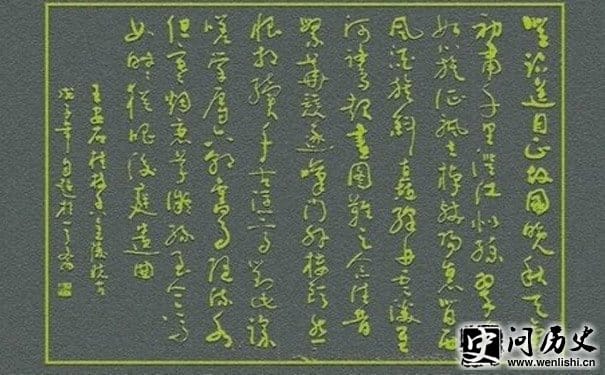 登臨送目正故國晚秋天氣
初肅千里澄江似練翠峰
如簇征帆去棹殘陽裏背西
風酒旗斜矗綵舟雲淡星
河鷺起畫圖難足念往昔
繁華競逐嘆門外樓頭悲
恨相續千古憑高對此謾
嗟榮辱六朝舊事隨流水
但寒煙衰草凝綠至今商
女時時猶唱後庭遺曲
王安石桂枝香金陵懷古
问历史
www.wenlishi.cn